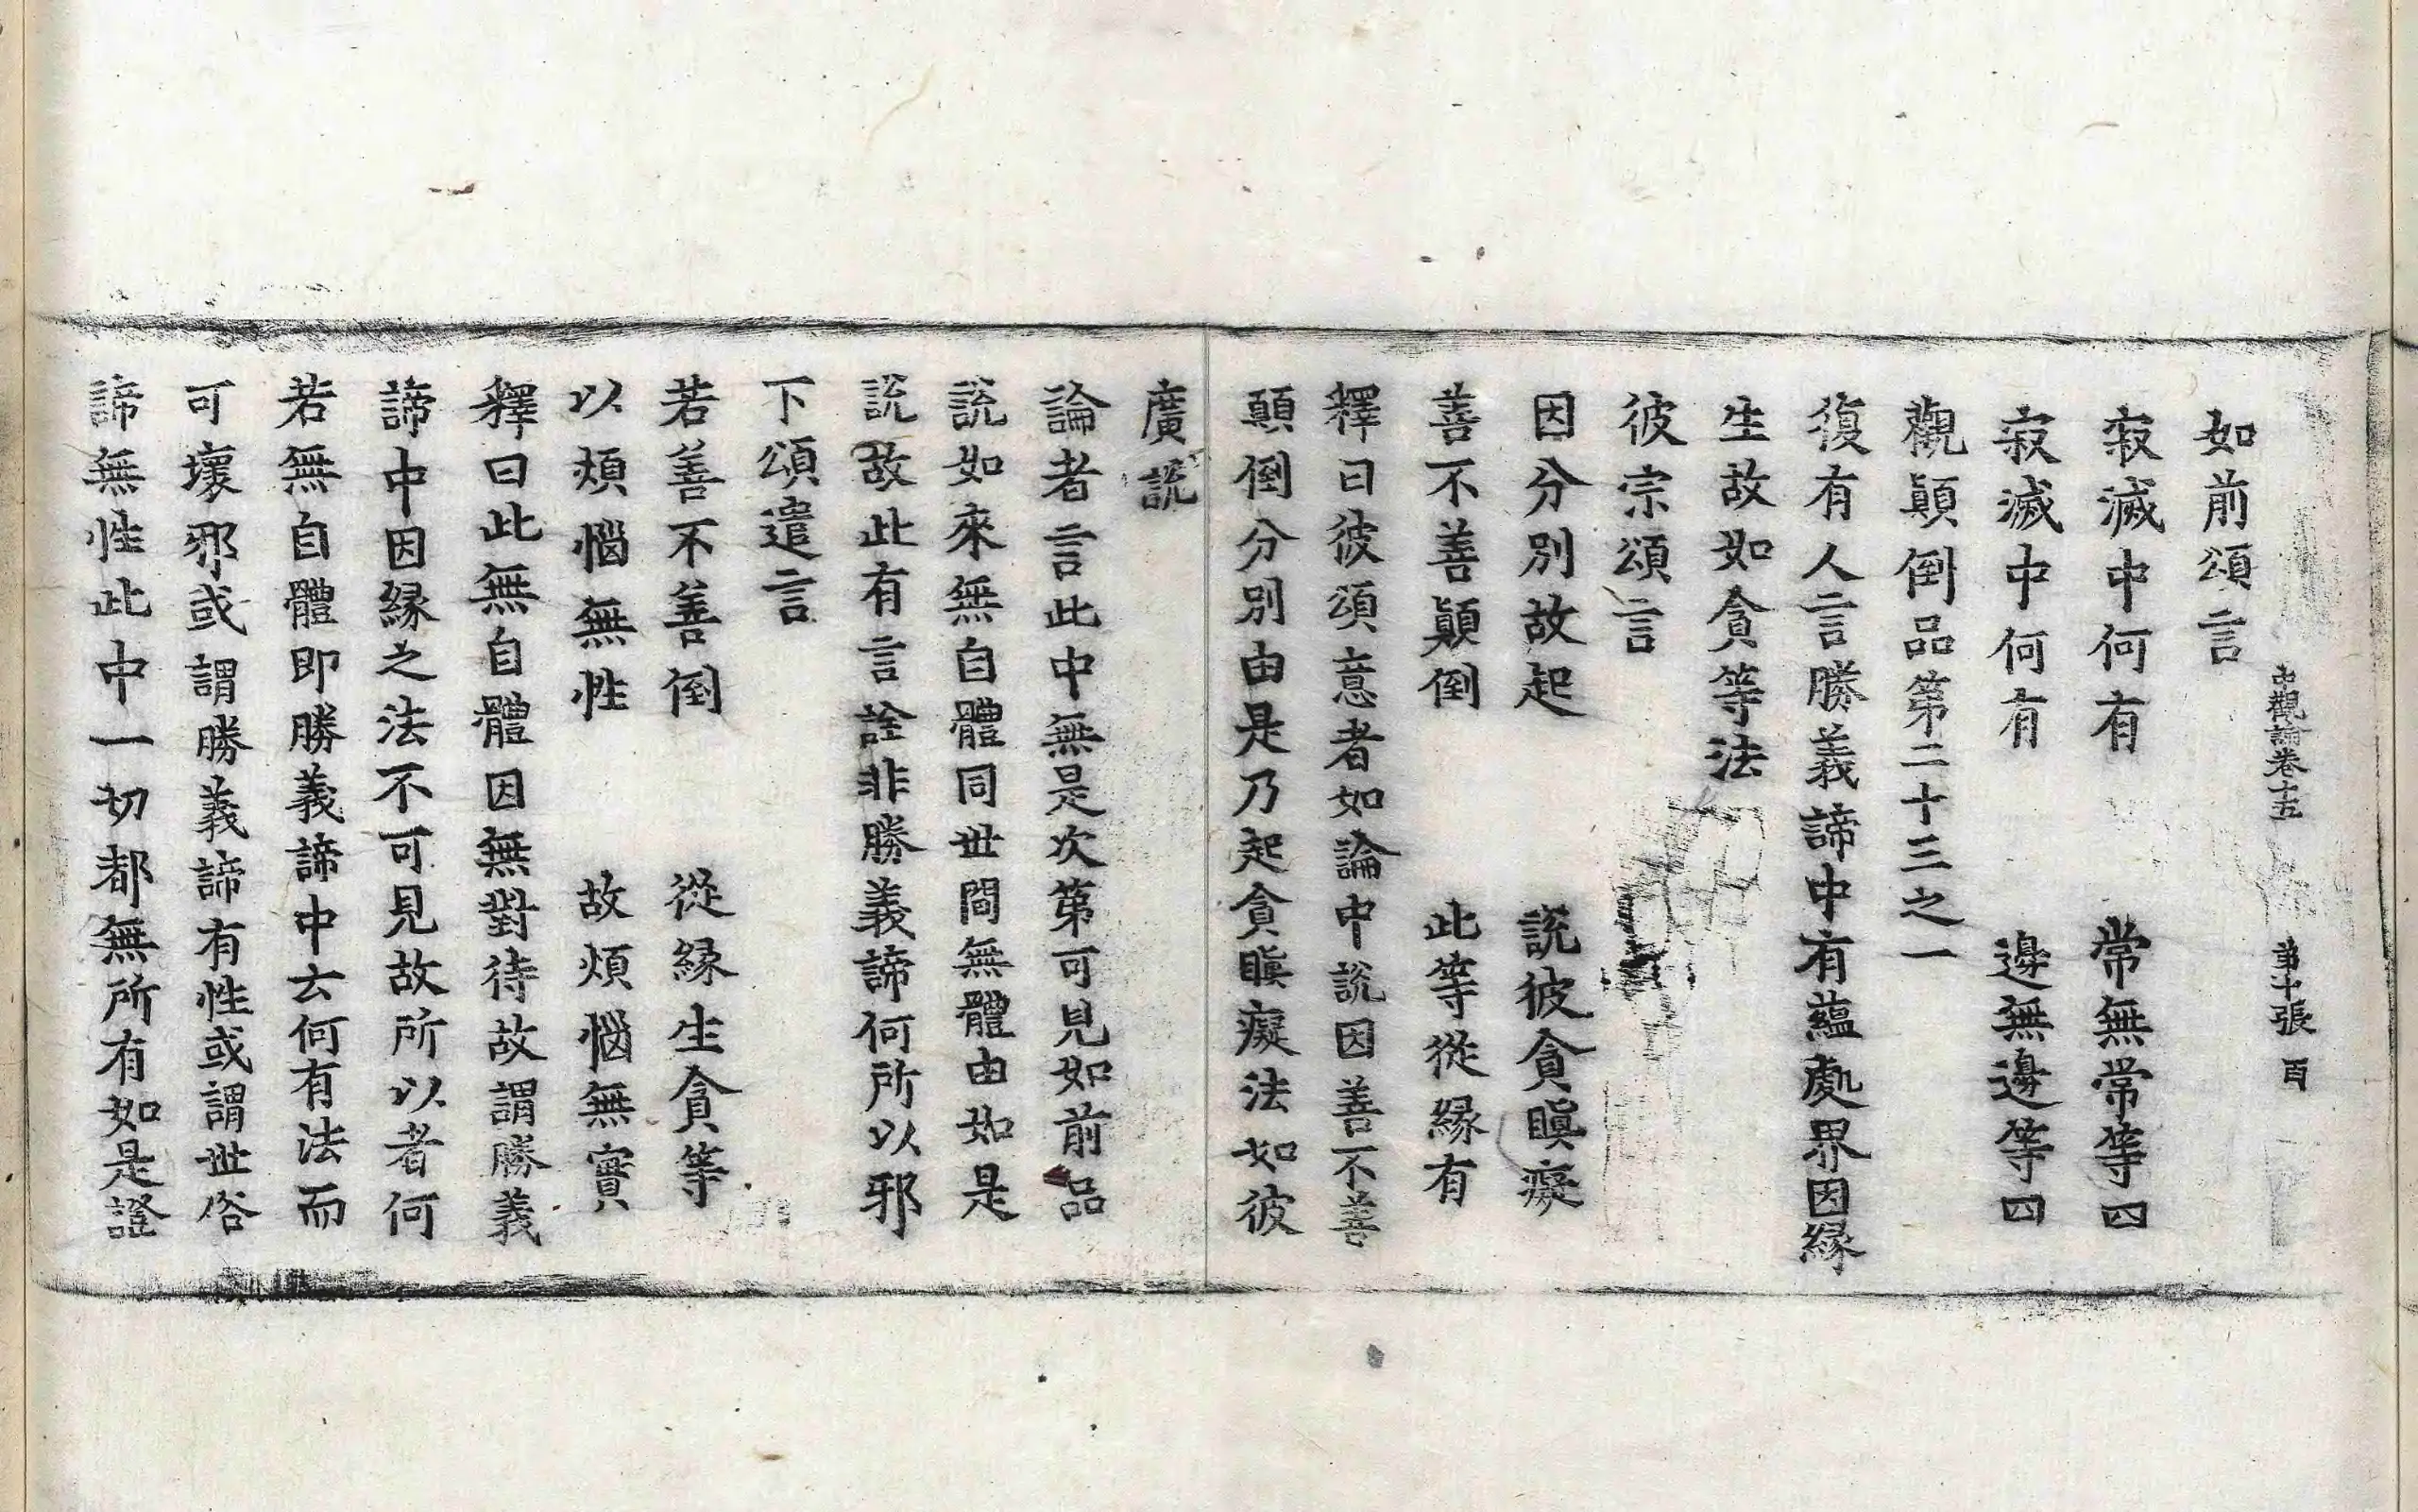 中觀論卷十五　第十張　百
如前頌言
寂滅中何有　常無常等四
寂滅中何有　邊無邊等四
觀顛倒品第二十三之一
復有人言勝義諦中有蘊處界因緣
生故如貪等法
彼宗頌言
因分別故起　說彼貪瞋癡
善不善顛倒　此等從緣有
釋曰彼頌意者如論中說因善不善
顛倒分別由是乃起貪瞋癡法如彼
廣說
論者言此中無是次第可見如前品
說如來無自體同世間無體由如是
說故此有言詮非勝義諦何所以邪
下頌遣言
若善不善倒　從緣生貪等
以煩惱無性　故煩惱無實
釋曰此無自體因無對待故謂勝義
諦中因緣之法不可見故所以者何
若無自體即勝義諦中云何有法而
可壞邪或謂勝義諦有性或謂世俗
諦無性此中一切都無所有如是證